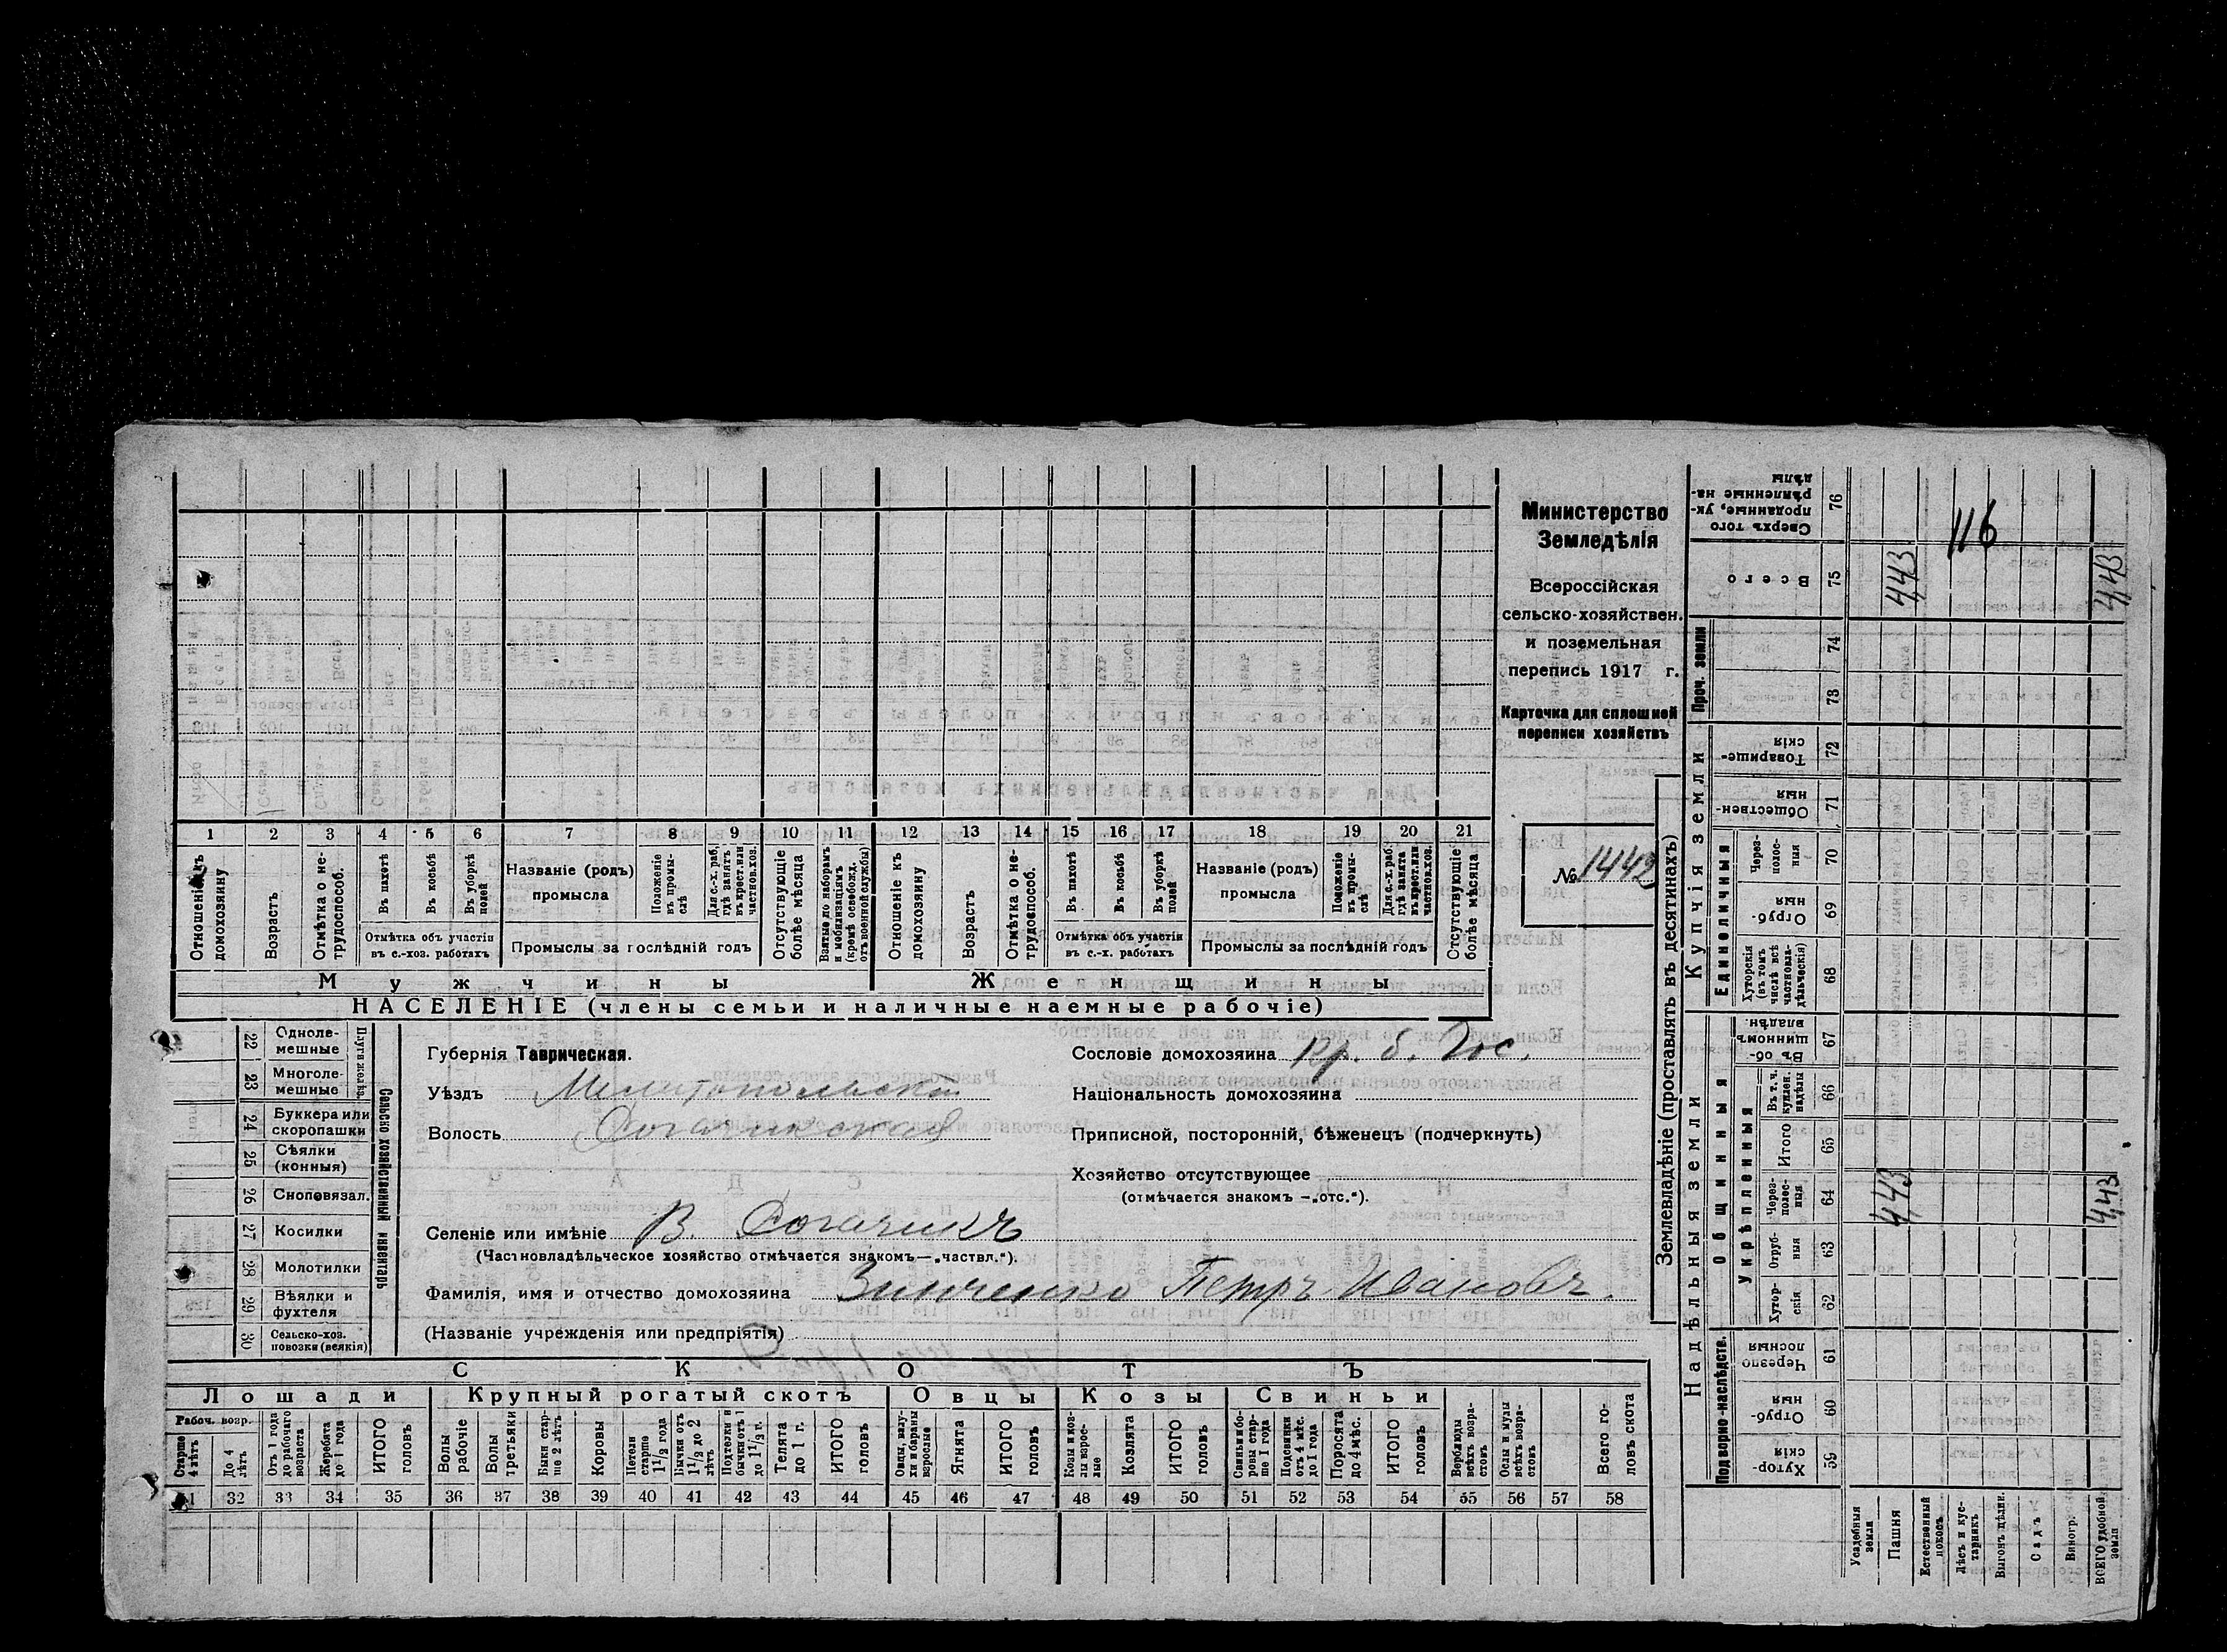 1 2 3 4 5 6 7 8 9 10 11 12 13 14 15 16 17 18 19 20 21
Отношеніе къ домохозяину
Возрастъ
Отмѣтка о не-
трудоспособ.
Въ пахотѣ
Въ косьбѣ
Въ уборкѣ
полей
Отмѣтка объ участіи
въ с.-хоз. работахъ
Названіе (родъ)
промысла
Положеніе
въ промы-
слѣ
Для с.-х. раб.
гдѣ занятъ
въ крест. или
частнов. хоз.
Промыслы за послѣдній годъ
Отсутствующіе
болѣе мѣсяца
Взятые по наборамъ
и мобилизаціямъ
(кромѣ освобожд.
отъ военной службы)
Отношеніе къ
домохозяину
Возрастъ
Отмѣтка о не-
трудоспособ.
Въ пахотѣ
Въ косьбѣ
Въ уборкѣ
полей
Отмѣтка объ участіи
въ с.-х. работахъ
Названіе (родъ)
промысла
Положеніе
въ промы-
слѣ
Для с.-х. раб.
гдѣ занята
въ крест. или
частнов. хоз.
Промыслы за послѣдній годъ
Отсутствующіе
болѣе мѣсяца
Мужчины Женщины
НАСЕЛЕНІЕ (члены семьи и наличные наемные рабочіе)
Министерство
Земледѣлія
Всероссійская
сельско-хозяйствен.
и поземельная
перепись 1917 г.
Карточка для сплошной
переписи хозяйствъ
№ 1442
22 Одноле-
мешные
23 Многоле-
мешные
Плуги желѣз.
24 Буккера или
скоропашки
25 Сѣялки
(конныя)
26 Сноповязал.
27 Косилки
28 Молотилки
29 Вѣялки и
фухтеля
30 Сельско-хоз.
повозки (всякія)
Сельско хозяйственный инвентарь
Губернія Таврическая.
Уѣздъ Мелитопольскій
Волость Рогачикская
Селеніе или имѣніе В. Рогачикъ
(Частновладѣльческое хозяйство отмѣчается знакомъ—„частвл.“).
Фамилія, имя и отчество домохозяина Зинченко Петръ Ивановъ.
(Названіе учрежденія или предпріятія)
Сословіе домохозяина кр. б. Гос.
Національность домохозяина
Приписной, посторонній, бѣженецъ (подчеркнуть)
Хозяйство отсутствующее
(отмѣчается знакомъ —„отс.“).
СКОТЪ
Лошади Крупный рогатый скотъ Овцы Козы Свиньи
Рабоч. возр.
Старше
4 лѣтъ
До 4
лѣтъ
Отъ 1 года
до рабочаго
возраста
Жеребята
до 1 года
ИТОГО
головъ
Волы
рабочіе
Волы
третьяки
Быки стар-
ше 2 лѣтъ
Коровы
Нетели
старше
1 1/2 года
Бычки отъ
1 1/2 до 2
лѣтъ
Подтелки и
бычки отъ 1
до 1 1/2 г.
Телята
до 1 г.
ИТОГО
головъ
Овцы, валу-
хи и бараны
взрослые
Ягнята
ИТОГО
головъ
Козы и коз-
лы взрос-
лые
Козлята
ИТОГО
головъ
Свиньи и бо-
ровы стар-
ше 1 года
Подсвинки
отъ 4 мѣс.
до 1 года
Поросята
до 4 мѣс.
ИТОГО
головъ
Верблюды
всѣхъ возра-
стовъ
Ослы и мулы
всѣхъ возра-
стовъ
Всего го-
ловъ скота
31 32 33 34 35 36 37 38 39 40 41 42 43 44 45 46 47 48 49 50 51 52 53 54 55 56 57 58
Землевладѣніе (проставлять въ десятинахъ)
Надѣльныя земли Купчія земли Проч. земли
Подворно-наслѣдств.
Общинныя
Укрѣпленныя
Единоличныя
Хутор-
скія
59
Отруб-
ныя
60
Черезпо
лосныя
61
Хутор-
скія
62
Отруб-
ныя
63
Через-
полос-
ныя
64
Итого
65
Въ т. ч.
куплен.
надѣлы
66
Въ об-
щинномъ
владѣн.
67
Хуторскія
(въ томъ
числѣ всѣ
частновла-
дѣльческія)
68
Отруб-
ныя
69
Через-
полос-
ныя
70
Обществен-
ныя
71
Товарище-
скія
72
73
74
Всего
75
Сверхъ того
проданные, ук-
рѣпленные на-
дѣлы
76
Усадебная
земля
Пашня
Естественный
покосъ
Лѣсъ и кус-
тарникъ
Выгонъ цѣлин.
Садъ
Виногр.
ВСЕГО удобной
земли
4,43
4,43
4,43
4,43
116